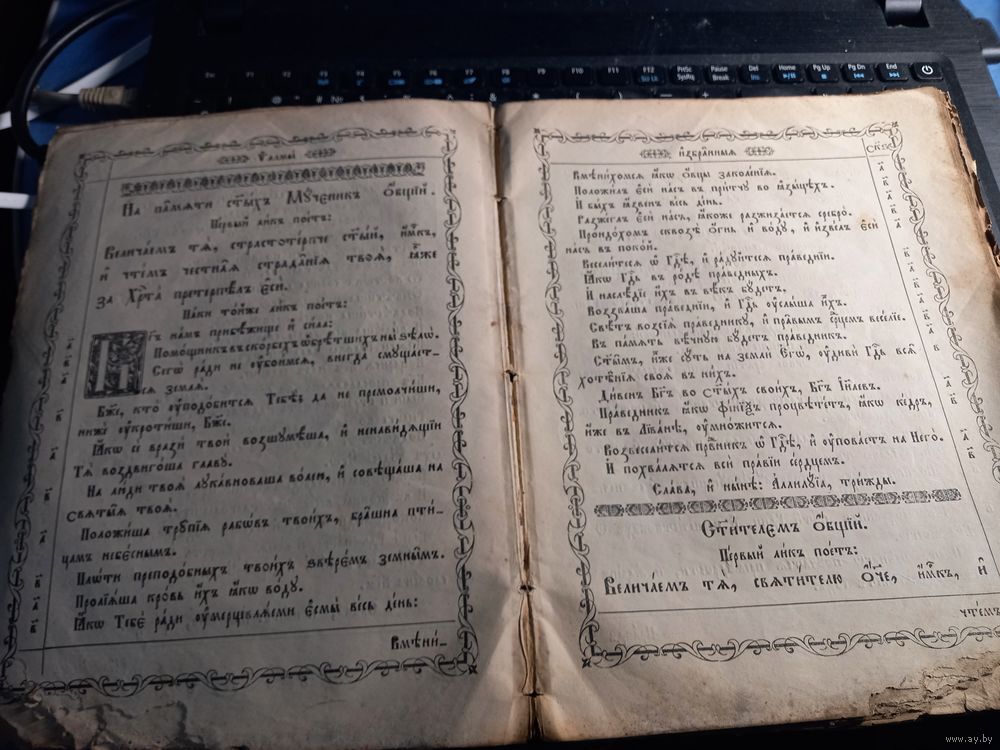 Ѱалмы̀
На па́мѧти ст҃ы́хъ Мꙋ́ченикъ Ѻ҆́бщїй.
Пе́рвый ли́къ пое́тъ:
Велича́емъ тѧ̀, страстоте́рпче ст҃ы́й, и҆́м҃къ,
и҆ чте́мъ честна̑ѧ страда̑нїѧ твоѧ̑, ꙗ҆̀же
за Хрⷭ҇та̀ претерпѣ́лъ є҆сѝ.
Па́ки то́йже ли́къ пое́тъ:
Б҃гъ на́мъ прибѣ́жище и҆ си́ла:
Помо́щникъ въ ско́рбехъ ѡ҆брѣ́тшихъ ны̀ ѕѣлѡ̀.
Сегѡ̀ ра́ди не ᲂу҆бои́мсѧ, внегда̀ смꙋща́ет-
сѧ землѧ̀.
Бж҃е, кто̀ ᲂу҆подо́битсѧ Тебѣ̀; да не премолчи́ши,
нижѐ ᲂу҆кроти́ши, Бж҃е.
Ꙗ҆́кѡ сѐ вразѝ твоѝ возшꙋмѣ́ша, и҆ ненави́дѧщїи
Тѧ̀ воздвиго́ша главꙋ̀.
На лю́ди твоѧ̑ лꙋка́вноваша во́лею, и҆ совѣща́ша на
ст҃ы̑ѧ твоѧ̑.
Положи́ша трꙋ̑пїѧ ра̑бъ твои́хъ, бра̑шна пти́-
цамъ небє́снымъ.
Плѡ́ти преподо́бныхъ твои́хъ ѕвѣрє́мъ земны̑мъ.
Пролїѧ́ша кро́вь и҆́хъ ꙗ҆́кѡ во́дꙋ.
Ꙗ҆́кѡ Тебє̀ ра́ди ᲂу҆мерщвлѧ́еми є҆смы̀ ве́сь де́нь:
Вмѣни́-
и҆збра́нныѧ
Вмѣни́хомсѧ ꙗ҆́кѡ ѻ҆́вцы заколе́нїѧ.
Положи́лъ є҆сѝ на́съ въ при́тчꙋ во ꙗ҆зы́цѣхъ.
И҆ бы́хъ ꙗ҆́звенъ ве́сь де́нь.
Разже́глъ є҆сѝ на́съ, ꙗ҆́коже разжиза́етсѧ сребро̀.
Пройдо́хомъ сквозѣ̀ ѻ҆́гнь и҆ во́дꙋ, и҆ и҆зве́лъ є҆сѝ
на́съ въ поко́й.
Весели́тесѧ ѡ҆ Гдⷭ҇ѣ, и҆ ра́дꙋйтесѧ пра́веднїи.
Ꙗ҆́кѡ Гдⷭ҇ь въ ро́дѣ пра́ведныхъ.
И҆ наслѣ́дїе и҆́хъ въ вѣ́къ бꙋ́детъ.
Воззва́ша пра́веднїи, и҆ Гдⷭ҇ь ᲂу҆слы́ша и҆́хъ.
Свѣ́тъ возсїѧ̀ пра́ведникꙋ, и҆ пра́вымъ се́рдцемъ весе́лїе.
Въ па́мѧть вѣ́чнꙋю бꙋ́детъ пра́ведникъ.
Ст҃ы́мъ, и҆̀же сꙋ́ть на землѝ є҆гѡ̀, ᲂу҆дивѝ Гдⷭ҇ь всѧ̑
хотѣ̑нїѧ своѧ̑ въ ни́хъ.
Ди́венъ Бг҃ъ во ст҃ы́хъ свои́хъ, Бг҃ъ І҆и҃левъ.
Пра́ведникъ ꙗ҆́кѡ фі́нїѯъ процвѣте́тъ, ꙗ҆́кѡ ке́дръ,
и҆́же въ Лїва́нѣ, ᲂу҆мно́житсѧ.
Возвесели́тсѧ првⷣникъ ѡ҆ Гдⷭ҇ѣ, и҆ ᲂу҆пова́етъ на Него̀.
И҆ похва́лѧтсѧ всѝ пра́вїи се́рдцемъ.
Сла́ва, и҆ ны́нѣ: А҆ллилꙋ́їа, три́жды.
Ст҃и́телємъ ѻ҆́бщїй.
Пе́рвый ли́къ пое́тъ:
Велича́емъ тѧ̀, свѧти́телю ѻ҆́ч҃е, и҆́м҃къ, и҆
чте́мъ
www.ay.by